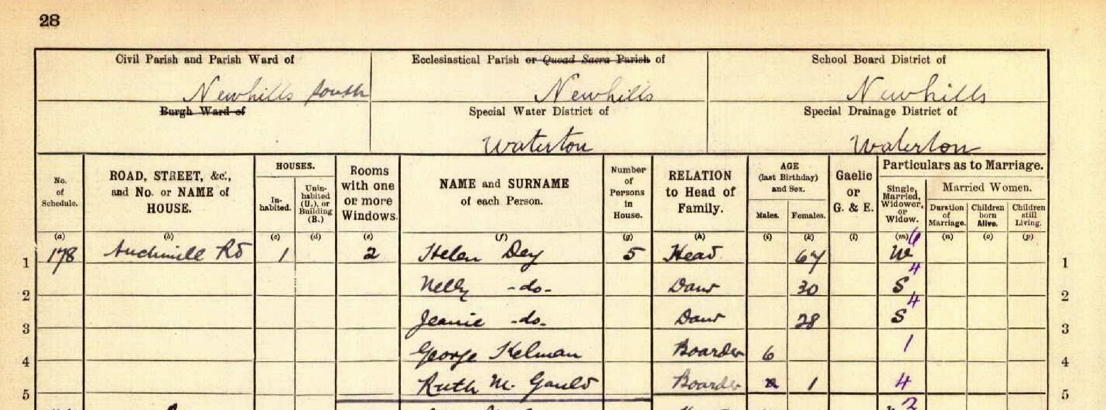 28
Civil Parish and Parish Ward of Ecclesiastical Parish or Quoad Sacra Parish of School Board District of
Newhills South Newhills Newhills
Burgh Ward of Special Water District of Special Drainage District of
Waterton Waterton
No. of Schedule. ROAD, STREET, &c., and No. or NAME of HOUSE. HOUSES. In-habited. Unin-habited (U.), or Building (B.) Rooms with one or more Windows. NAME and SURNAME of each Person. Number of Persons in House. RELATION to Head of Family. AGE (last Birthday) and Sex. Males. Females. Gaelic or G. & E. Particulars as to Marriage. Single, Married, Widower, or Widow. Married Women. Duration of Marriage. Children born Alive. Children still Living.
(a) (b) (c) (d) (e) (f) (g) (h) (i) (k) (l) (m) (n) (o) (p)
1 178 Auchmill Rd 1 2 Helen Dey 5 Head 67 W 1
2 Nelly -do- Daur 30 S 4 2
3 Jeanie -do- Daur 28 S 4 3
4 George Kelman Boarder 6 1 4
5 Ruth M. Gauld Boarder 1 4 5
2